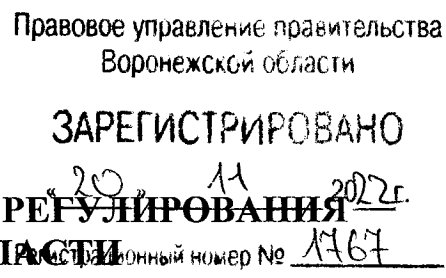 Правовое управление правительства
Воронежской области
ЗАРЕГИСТРИРОВАНО
"20" 11 2022г.
РЕГУЛИРОВАНИЯ
Регистрационный номер № 1767